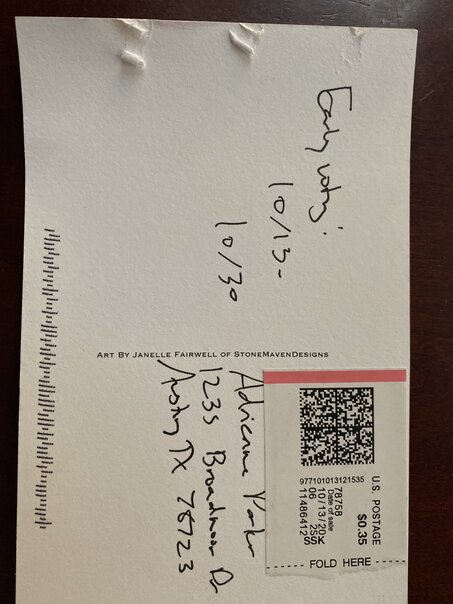 Early voting:
10/13-
10/30
ART BY JANELLE FAIRWELL OF STONEMAVENDESIGNS
Adrienne Parker
1235 Broadmoor Dr
Austin, TX 78723
977101013121535
U.S. POSTAGE
$0.35
78758
Date of sale
10/13/20
06 2S
11486412
SSK
FOLD HERE